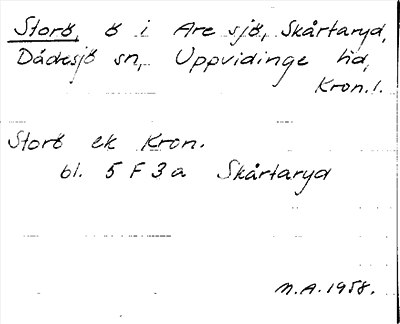 Storö, ö i Are sjö, Skårtaryd,
Dädesjö sn, Uppvidinge hd,
Kron. l.
Storö ek Kron.
bl. 5 F 3 a Skårtaryd
M.A. 1958.